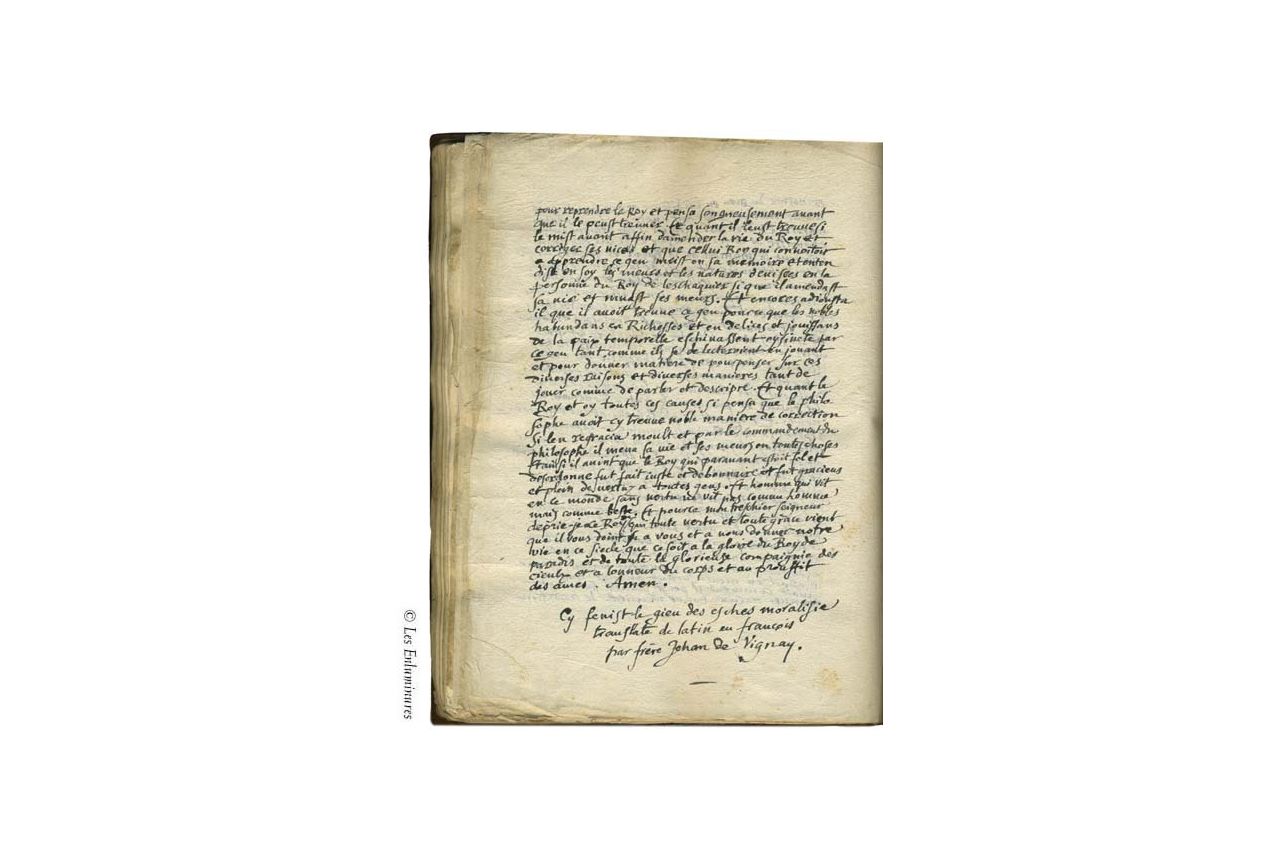 pour reprendre le Roy et pensa songneusement avant
que il le peust trouver Et quant il leust trouve si
le mist avant affin damender la vie du Roy et
corriger ses vices et que cellui Roy qui convoitoit
a apprendre ce geu meist en sa memoire et enten
dist en soy les meurs et les natures devisees en la
personne du Roy de leschaquier si que il amendast
sa vie et muast ses meurs. Et encores adiousta
il que il avoit trouve ce geu pource que les nobles
habundans en Richesses et en delices et jouissans
de la paix temporelle eschivassent oysivete par
ce geu tant comme ilz se delecteroient en jouant
et pour donner matiere de pourpenser sur ces
diverses raisons et diverses manieres tant de
jouer comme de parler et descripre. Et quant le
Roy et oy toutes ces causes si pensa que le philo
sophe avoit cy trouve noble maniere de correction
Si len regracia moult et par le commandement du
philosophe il mena sa vie et ses meurs en toutes choses
Et ainsi il avint que le Roy qui paravant estoit fol et
desordonne fut fait iuste et debonnaire et fut gracieus
et plein de vertuz a toutes gens. Et homme qui vit
en ce monde sans vertu ne vit pas comme homme
mais comme beste. Et pource mon treschier seigneur
deprie je le Roy qui toute vertu et toute grace vient
que il vous doint a vous et a nous donner notre
vie en ce siecle que ce soit a la gloire du Roy de
paradis et de toute la glorieuse compaignie des
cieulx et a lonneur du corps et au prouffit
des ames. Amen.
Cy fenist le gieu des esches moralisie
translate de latin en françois
par frère Jehan de Vignay.
© Les Enluminures